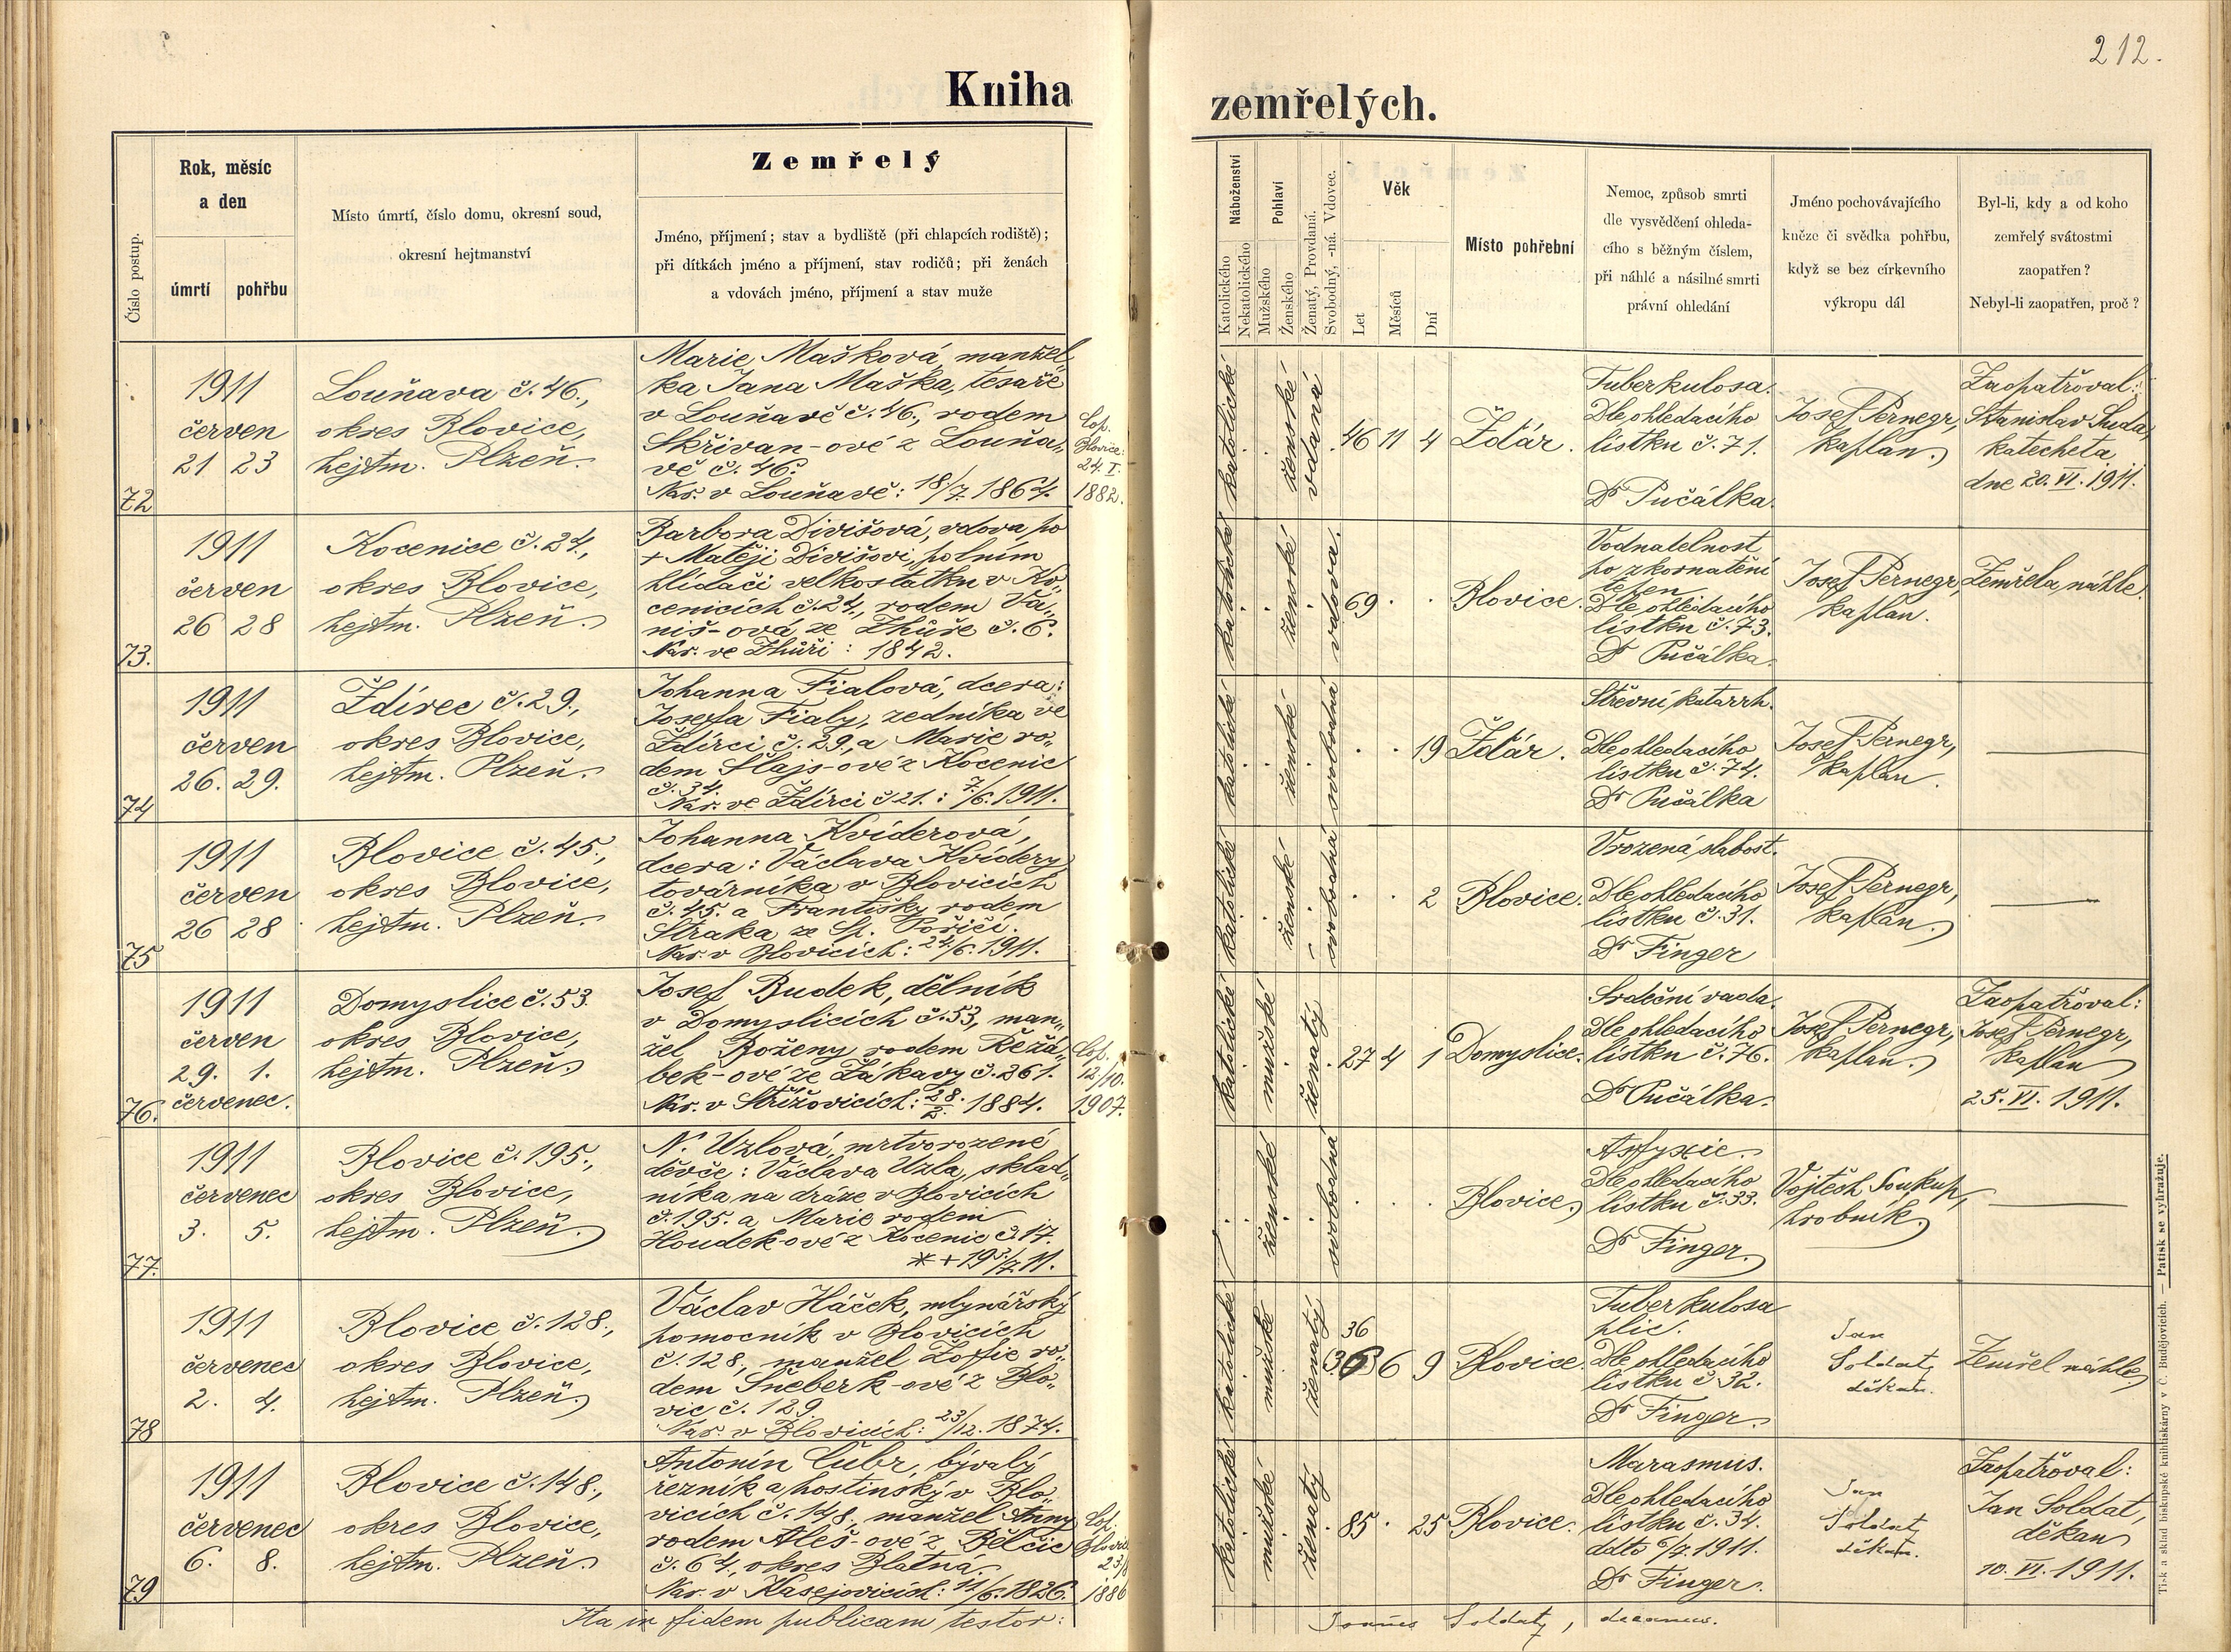 212.
Kniha zemřelých.
Číslo postup.
Rok, měsíc
a den
úmrtí
pohřbu
Místo úmrtí, číslo domu, okresní soud,
okresní hejtmanství
Zemřelý
Jméno, příjmení; stav a bydliště (při chlapcích rodiště);
při dítkách jméno a příjmení, stav rodičů; při ženách
a vdovách jméno, příjmení a stav muže
Náboženství
Katolického
Nekatolického
Pohlaví
Mužského
Ženského
Ženatý, Provdaná.
Svobodný, -ná. Vdovec.
Věk
Let
Měsíců
Dní
Místo pohřební
Nemoc, způsob smrti
dle vysvědčení ohleda-
cího s běžným číslem,
při náhlé a násilné smrti
právní ohledání
Jméno pochovávajícího
kněze či svědka pohřbu,
když se bez církevního
výkropu dál
Byl-li, kdy a od koho
zemřelý svátostmi
zaopatřen?
Nebyl-li zaopatřen, proč?
72
1911
červen
21 23
Louňava č. 46.,
okres Blovice,
hejtm. Plzeň.
Marie Mašková, manžel„
ka Jana Maška, tesaře
v Louňavě č. 46., rodem
Skřivan-ové z Louňa„
vě č. 46.
Nar. v Louňavě: 18/7. 1864.
Cop.
Blovice:
24. I.
1882.
katolické
ženské
vdaná
46 11 4
Žďár.
Tuberkulosa.
Dle ohledacího
lístku č. 71.
Dr Pučálka.
Josef Pernegr,
kaplan.
Zaopatřoval:
Stanislav Suda,
katecheta
dne 20. VI. 1911.
73.
1911
červen
26 28
Kocenice č. 24.,
okres Blovice,
hejtm. Plzeň.
Barbora Divišová, vdova po
+ Matěji Divišovi, polním
hlídači velkostatku v Ko„
cenicích č. 24., rodem Vá„
niš-ová ze Zhůře č. 6.
Nar. ve Zhůři: 1842.
katolické
ženské
vdova.
69
Blovice.
Vodnatelnost
po zkornatění
tepen
Dle ohledacího
lístku č. 73.
Dr Pučálka.
Josef Pernegr,
kaplan.
Zemřela náhle.
74
1911
červen
26. 29.
Ždírec č. 29.,
okres Blovice,
hejtm. Plzeň.
Johanna Fialová, dcera:
Josefa Fialy, zedníka ve
Ždírci č. 29., a Marie ro„
dem Šlajs-ové z Kocenic
č. 34.
Nar. ve Ždírci č 21.: 7/6. 1911.
katolické
ženské
svobodná
19
Žďár.
Střevní katarrh.
Dle ohledacího
lístku č. 74.
Dr Pučálka
Josef Pernegr,
kaplan.
75
1911
červen
26 28
Blovice č. 45.,
okres Blovice,
hejtm. Plzeň.
Johanna Kviderová,
dcera: Václava Kvidery
továrníka v Blovicích
č. 45. a Františky rodem
Straka ze Sp. Poříčí.
Nar. v Blovicích: 24/6. 1911.
katolické
ženské
svobodná
2
Blovice.
Vrozená slabost.
Dle ohledacího
lístku č. 31.
Dr Finger
Josef Pernegr,
kaplan.
76.
1911
červen
29. 1.
červenec.
Domyslice č. 53.
okres Blovice,
hejtm. Plzeň.
Josef Budek, dělník
v Domyslicích č. 53, man„
žel Boženy rodem Řežá„
bek-ové ze Žákavy č. 361.
Nar. v Střížovicích: 28./2. 1884.
Cop.
12/10.
1907.
katolické
mužské
ženatý
27 4 1
Domyslice.
Srdeční vada.
Dle ohledacího
lístku č. 76.
Dr Pučálka.
Josef Pernegr,
kaplan.
Zaopatřoval:
Josef Pernegr,
kaplan
25. VI. 1911.
77.
1911
červenec
3. 5.
Blovice č. 195.,
okres Blovice,
hejtm. Plzeň.
N. Uzlová, mrtvorozené
děvče: Václava Uzla, sklad„
níka na dráze v Blovicích
č. 195. a Marie rodem
Houdek-ové z Kocenic č. 17.
* + 19 3/7. 11.
ženské
svobodná
Blovice,
Asfyxie.
Dle ohledacího
lístku č. 33.
Dr Finger.
Vojtěch Soukup,
hrobník.
78
1911
červenec
2. 4.
Blovice č. 128.,
okres Blovice,
hejtm. Plzeň.
Václav Háček, mlynářský
pomocník v Blovicích
č. 128., manžel Žofie ro„
dem Šneberk-ové z Blo„
vic č. 129.
Nar. v Blovicích: 23/12. 1874.
katolické
mužské
ženatý
36
(36) 6 9
Blovice.
Tuberkulosa
plic.
Dle ohledacího
lístku č 32.
Dr Finger.
Jan
Soldát,
děkan.
Zemřel náhle.
79
1911
červenec
6. 8.
Blovice č. 148.,
okres Blovice,
hejtm. Plzeň.
Antonín Čubr, bývalý
řezník a hostinský v Blo„
vicích č. 148., manžel Anny
rodem Aleš-ové z Bělčic
č. 64, okres Blatná.
Nar. v Kasejovicích: 11/6. 1826.
Cop.
Blovice
23/
1886
katolické
mužské
ženatý
85 25
Blovice.
Marasmus.
Dle ohledacího
lístku č. 34.
dato 6/7. 1911.
Dr Finger.
Jan
Soldát,
děkan.
Zaopatřoval:
Jan Soldát,
děkan
10. VI. 1911.
Ita in fidem publicam testor:
Joannes Soldát, decanus.
Tisk a sklad biskupské knihtiskárny v Č. Budějovicích. — Patisk se vyhražuje.